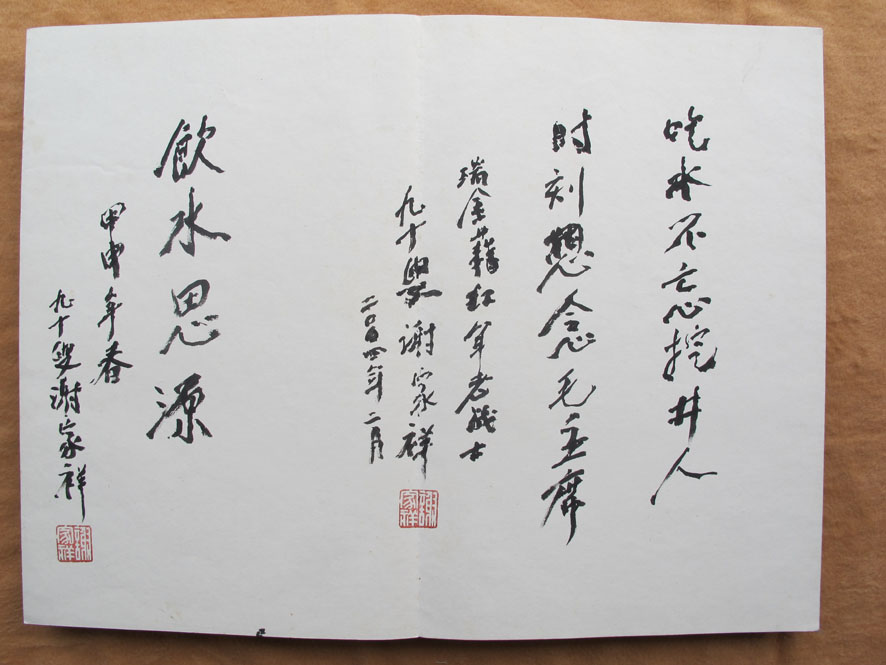 吃水不忘挖井人
时刻想念毛主席
瑞金籍红军老战士
九十叟谢家祥
二〇〇四年二月
谢家祥
飲水思源
甲申年春
九十叟谢家祥
谢家祥